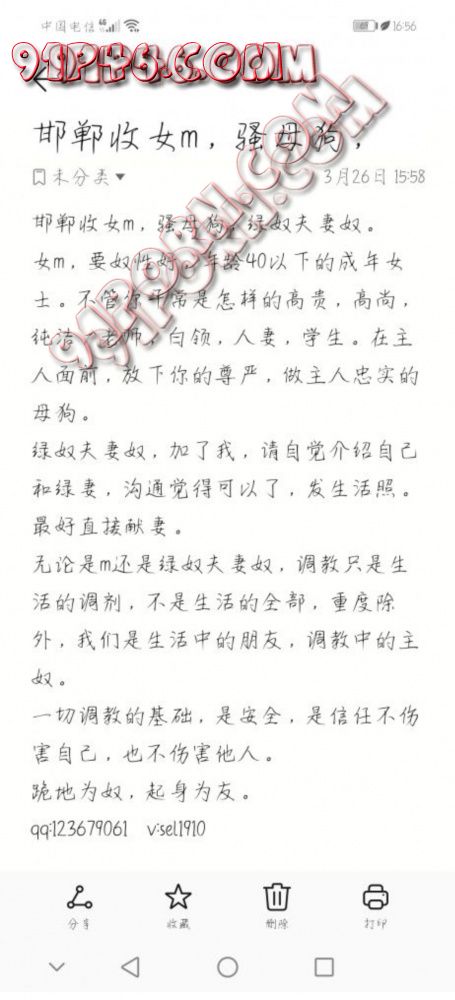 中国电信 4G 16:56
91P46.COM
邯郸收女m，骚母狗，
未分类 3月26日 15:58
邯郸收女m，骚母狗，绿奴夫妻奴。
女m，要奴性好，年龄40以下的成年女
士。不管你平常是怎样的高贵，高尚，
纯洁，老师，白领，人妻，学生。在主
人面前，放下你的尊严，做主人忠实的
母狗。
绿奴夫妻奴，加了我，请自觉介绍自己
和绿妻，沟通觉得可以了，发生活照。
最好直接献妻。
无论是m还是绿奴夫妻奴，调教只是生
活的调剂，不是生活的全部，重度除
外，我们是生活中的朋友，调教中的主
奴。
一切调教的基础，是安全，是信任不伤
害自己，也不伤害他人。
跪地为奴，起身为友。
qq:123679061 v:sel1910
分享 收藏 删除 打印